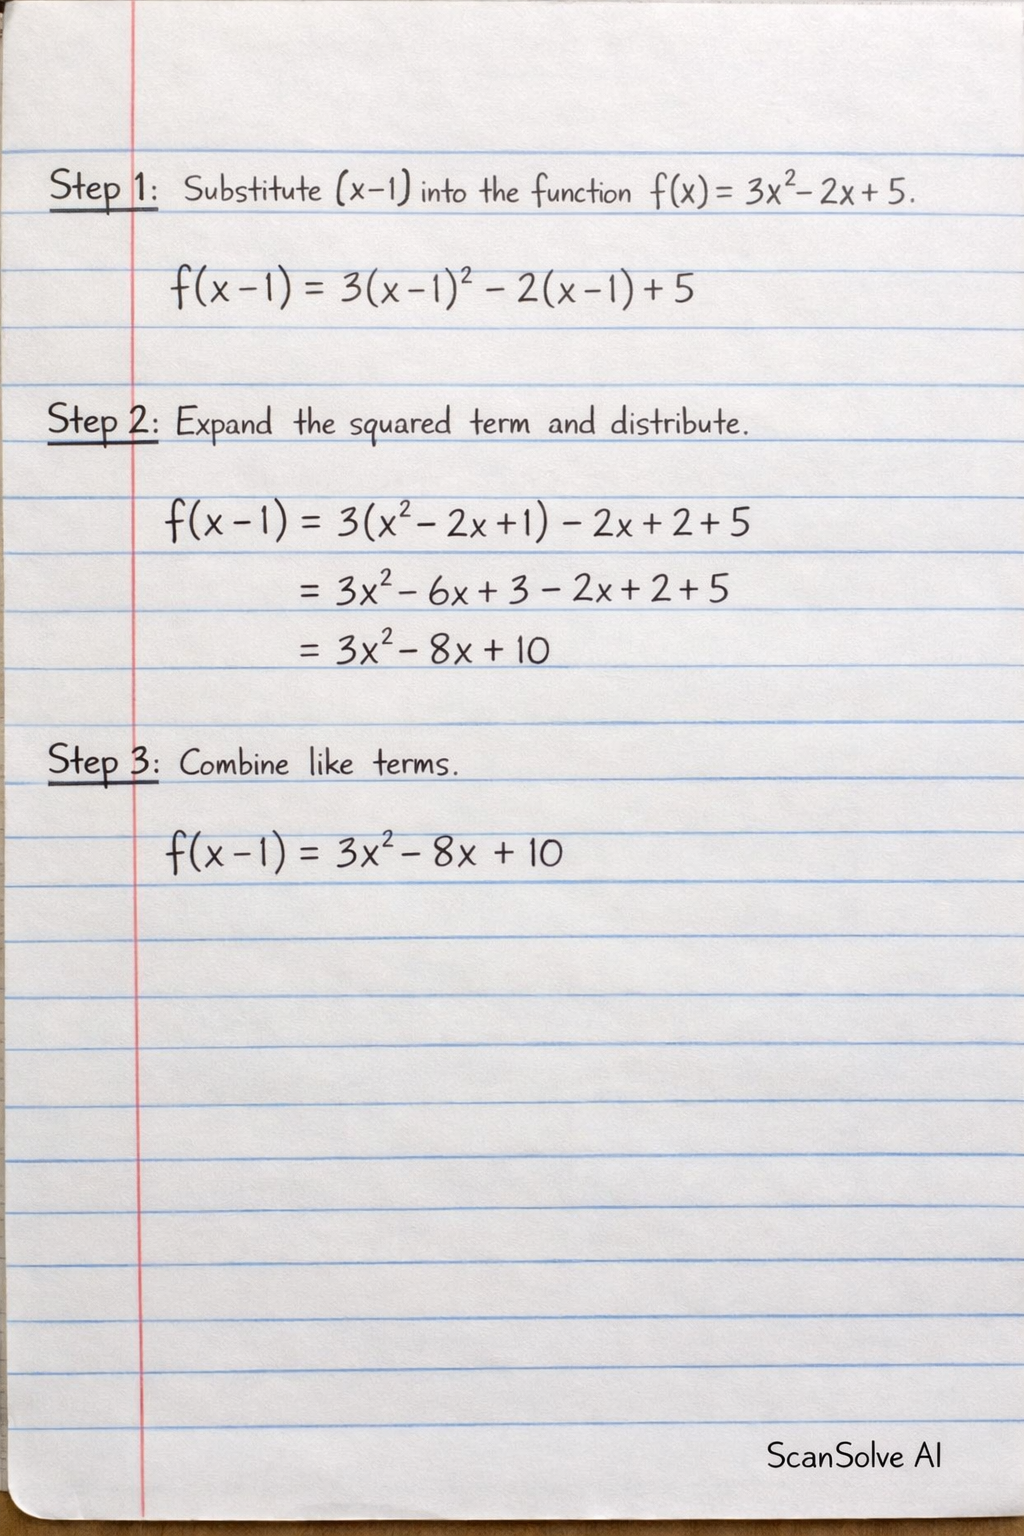 Step 1: Substitute (x-1) into the function f(x) = 3x² - 2x + 5.
f(x-1) = 3(x-1)² - 2(x-1) + 5
Step 2: Expand the squared term and distribute.
f(x-1) = 3(x² - 2x + 1) - 2x + 2 + 5
= 3x² - 6x + 3 - 2x + 2 + 5
= 3x² - 8x + 10
Step 3: Combine like terms.
f(x-1) = 3x² - 8x + 10
ScanSolve AI